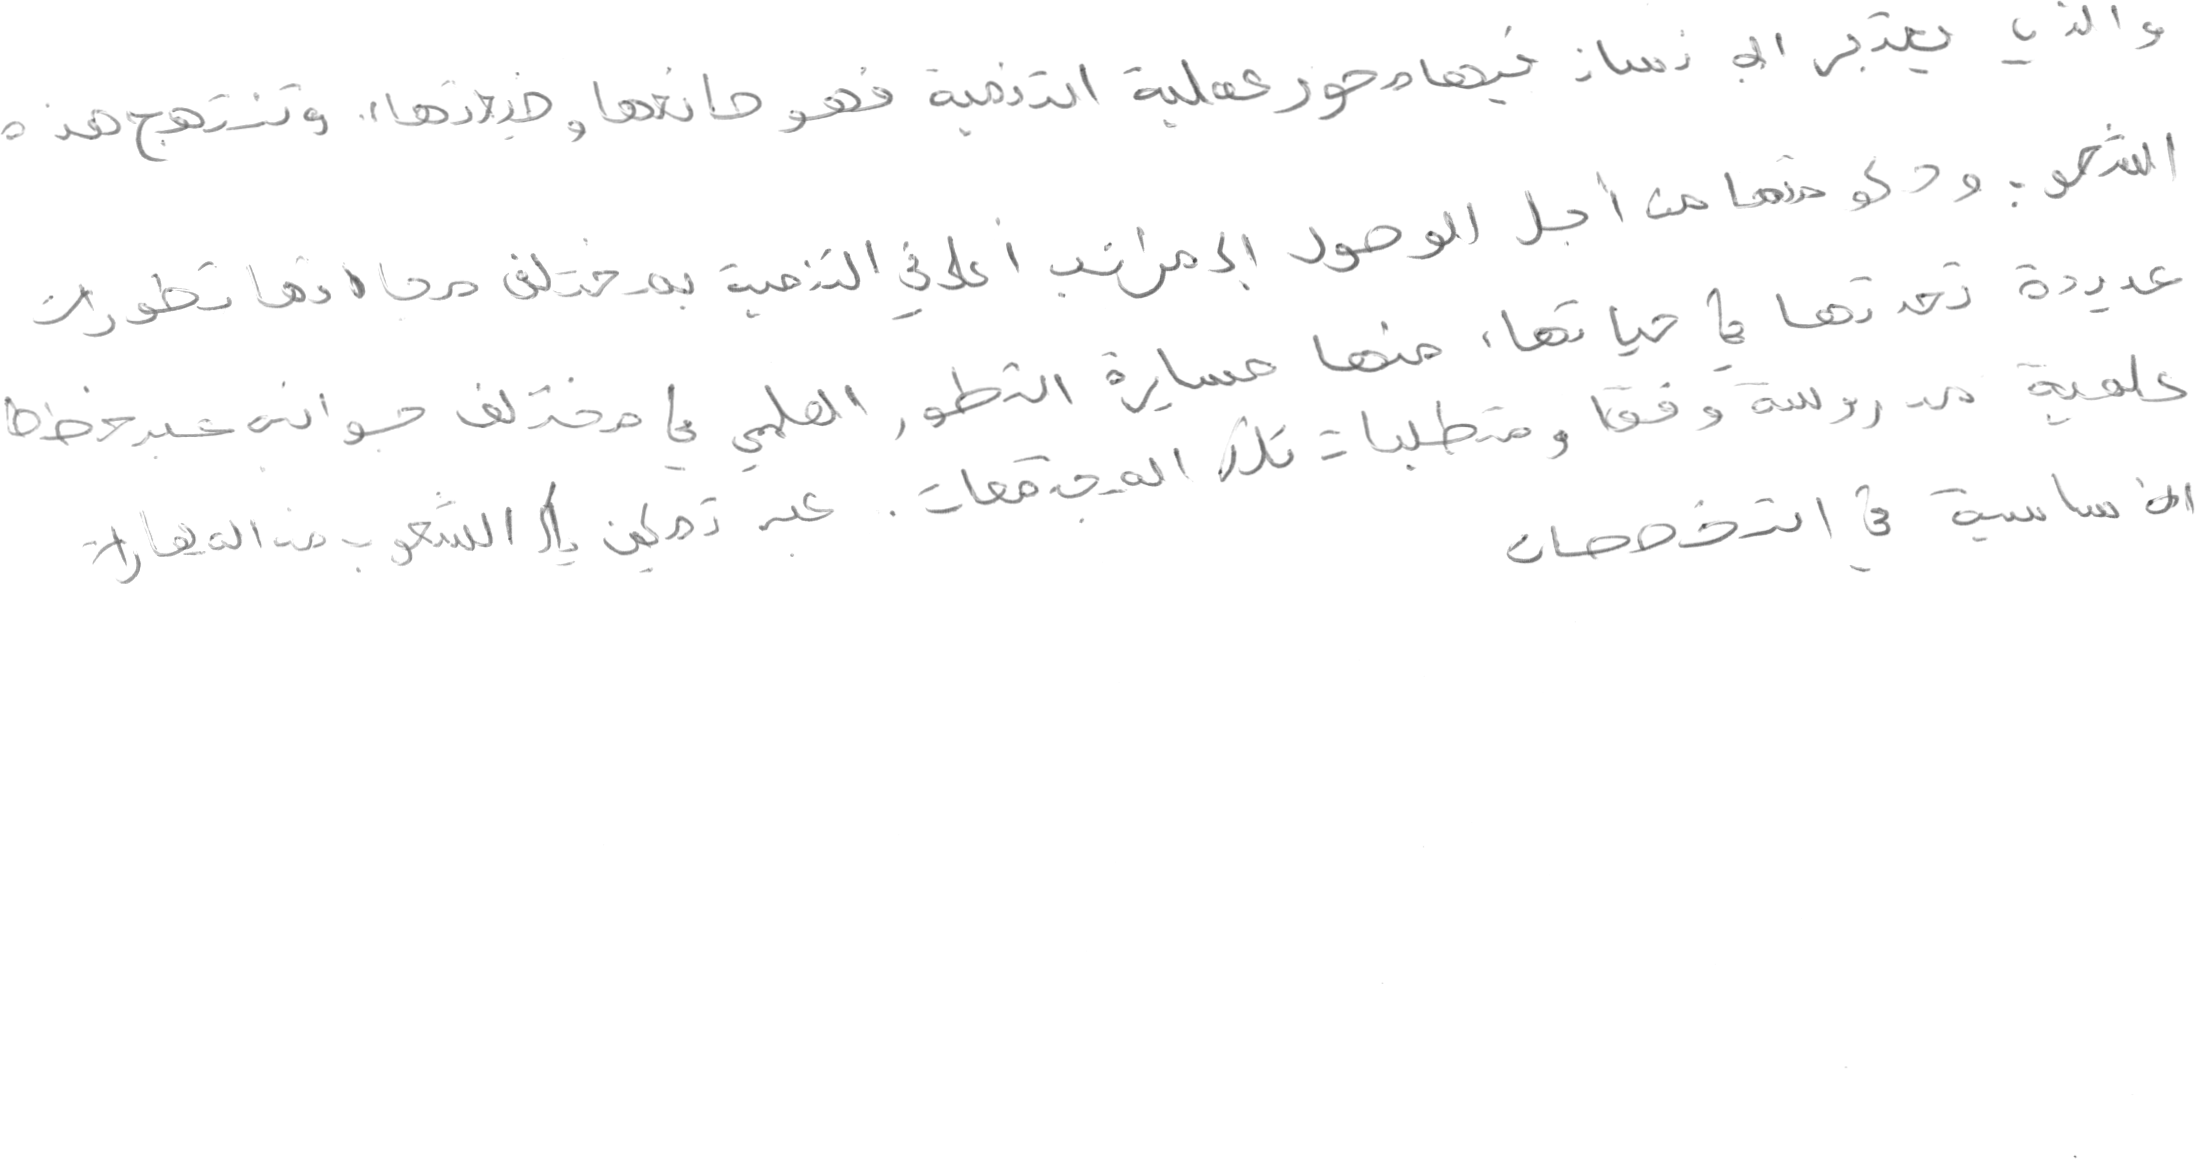 والذي يعتبر الإنسان فيها محور عملية التنمية فهو صانعها وضيعتها، وتنتهج هذه
الشعوب وحكومتها من أجل الوصول إلى مراتب أعلى في التنمية بمختلف مجالاتها تطورات
عديدة تحدثها في حياتها، منها مسايرة التطور العلمي في مختلف جوانبه عبر خطط
علمية مدروسة وفقا ومتطلبات تلك المجتمعات. عبر تمكين الشعوب من المهارات
الأساسية في التخصصات